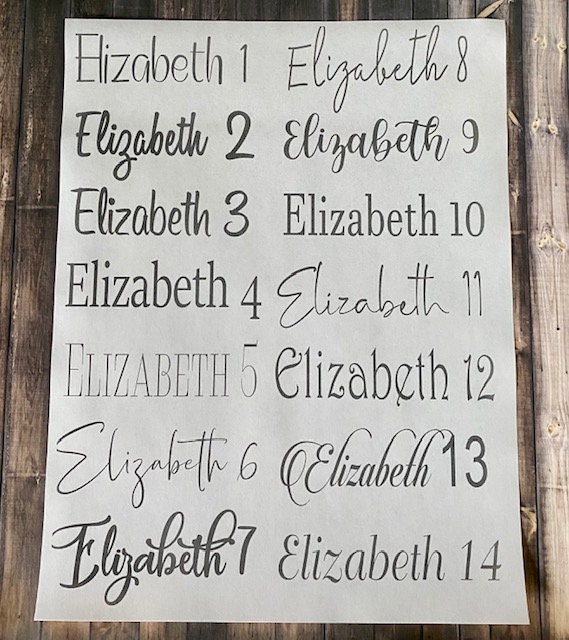 Elizabeth 1
Elizabeth 2
Elizabeth 3
Elizabeth 4
ELIZABETH 5
Elizabeth 6
Elizabeth 7
Elizabeth 8
Elizabeth 9
Elizabeth 10
Elizabeth 11
Elizabeth 12
Elizabeth 13
Elizabeth 14